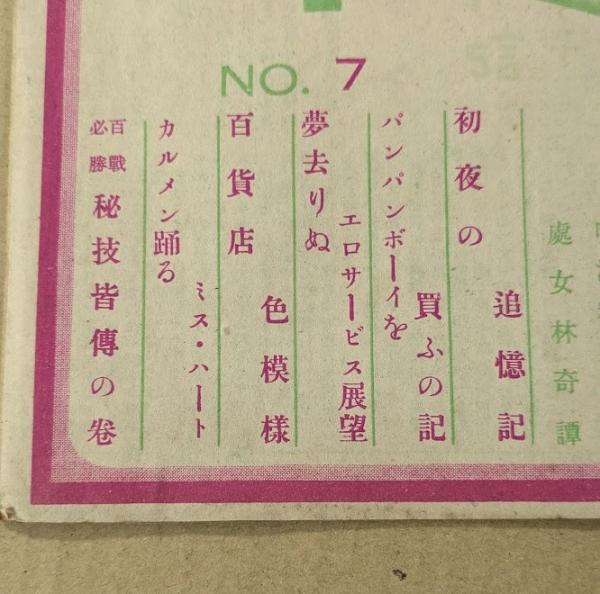 NO. 7
處女林奇譚
初夜の
追憶記
パンパンボーイを
買ふの記
夢去りぬ
エロサービス展望
百貨店
色模様
カルメン踊る
ミス・ハート
百戰
必勝
秘技皆傳の卷